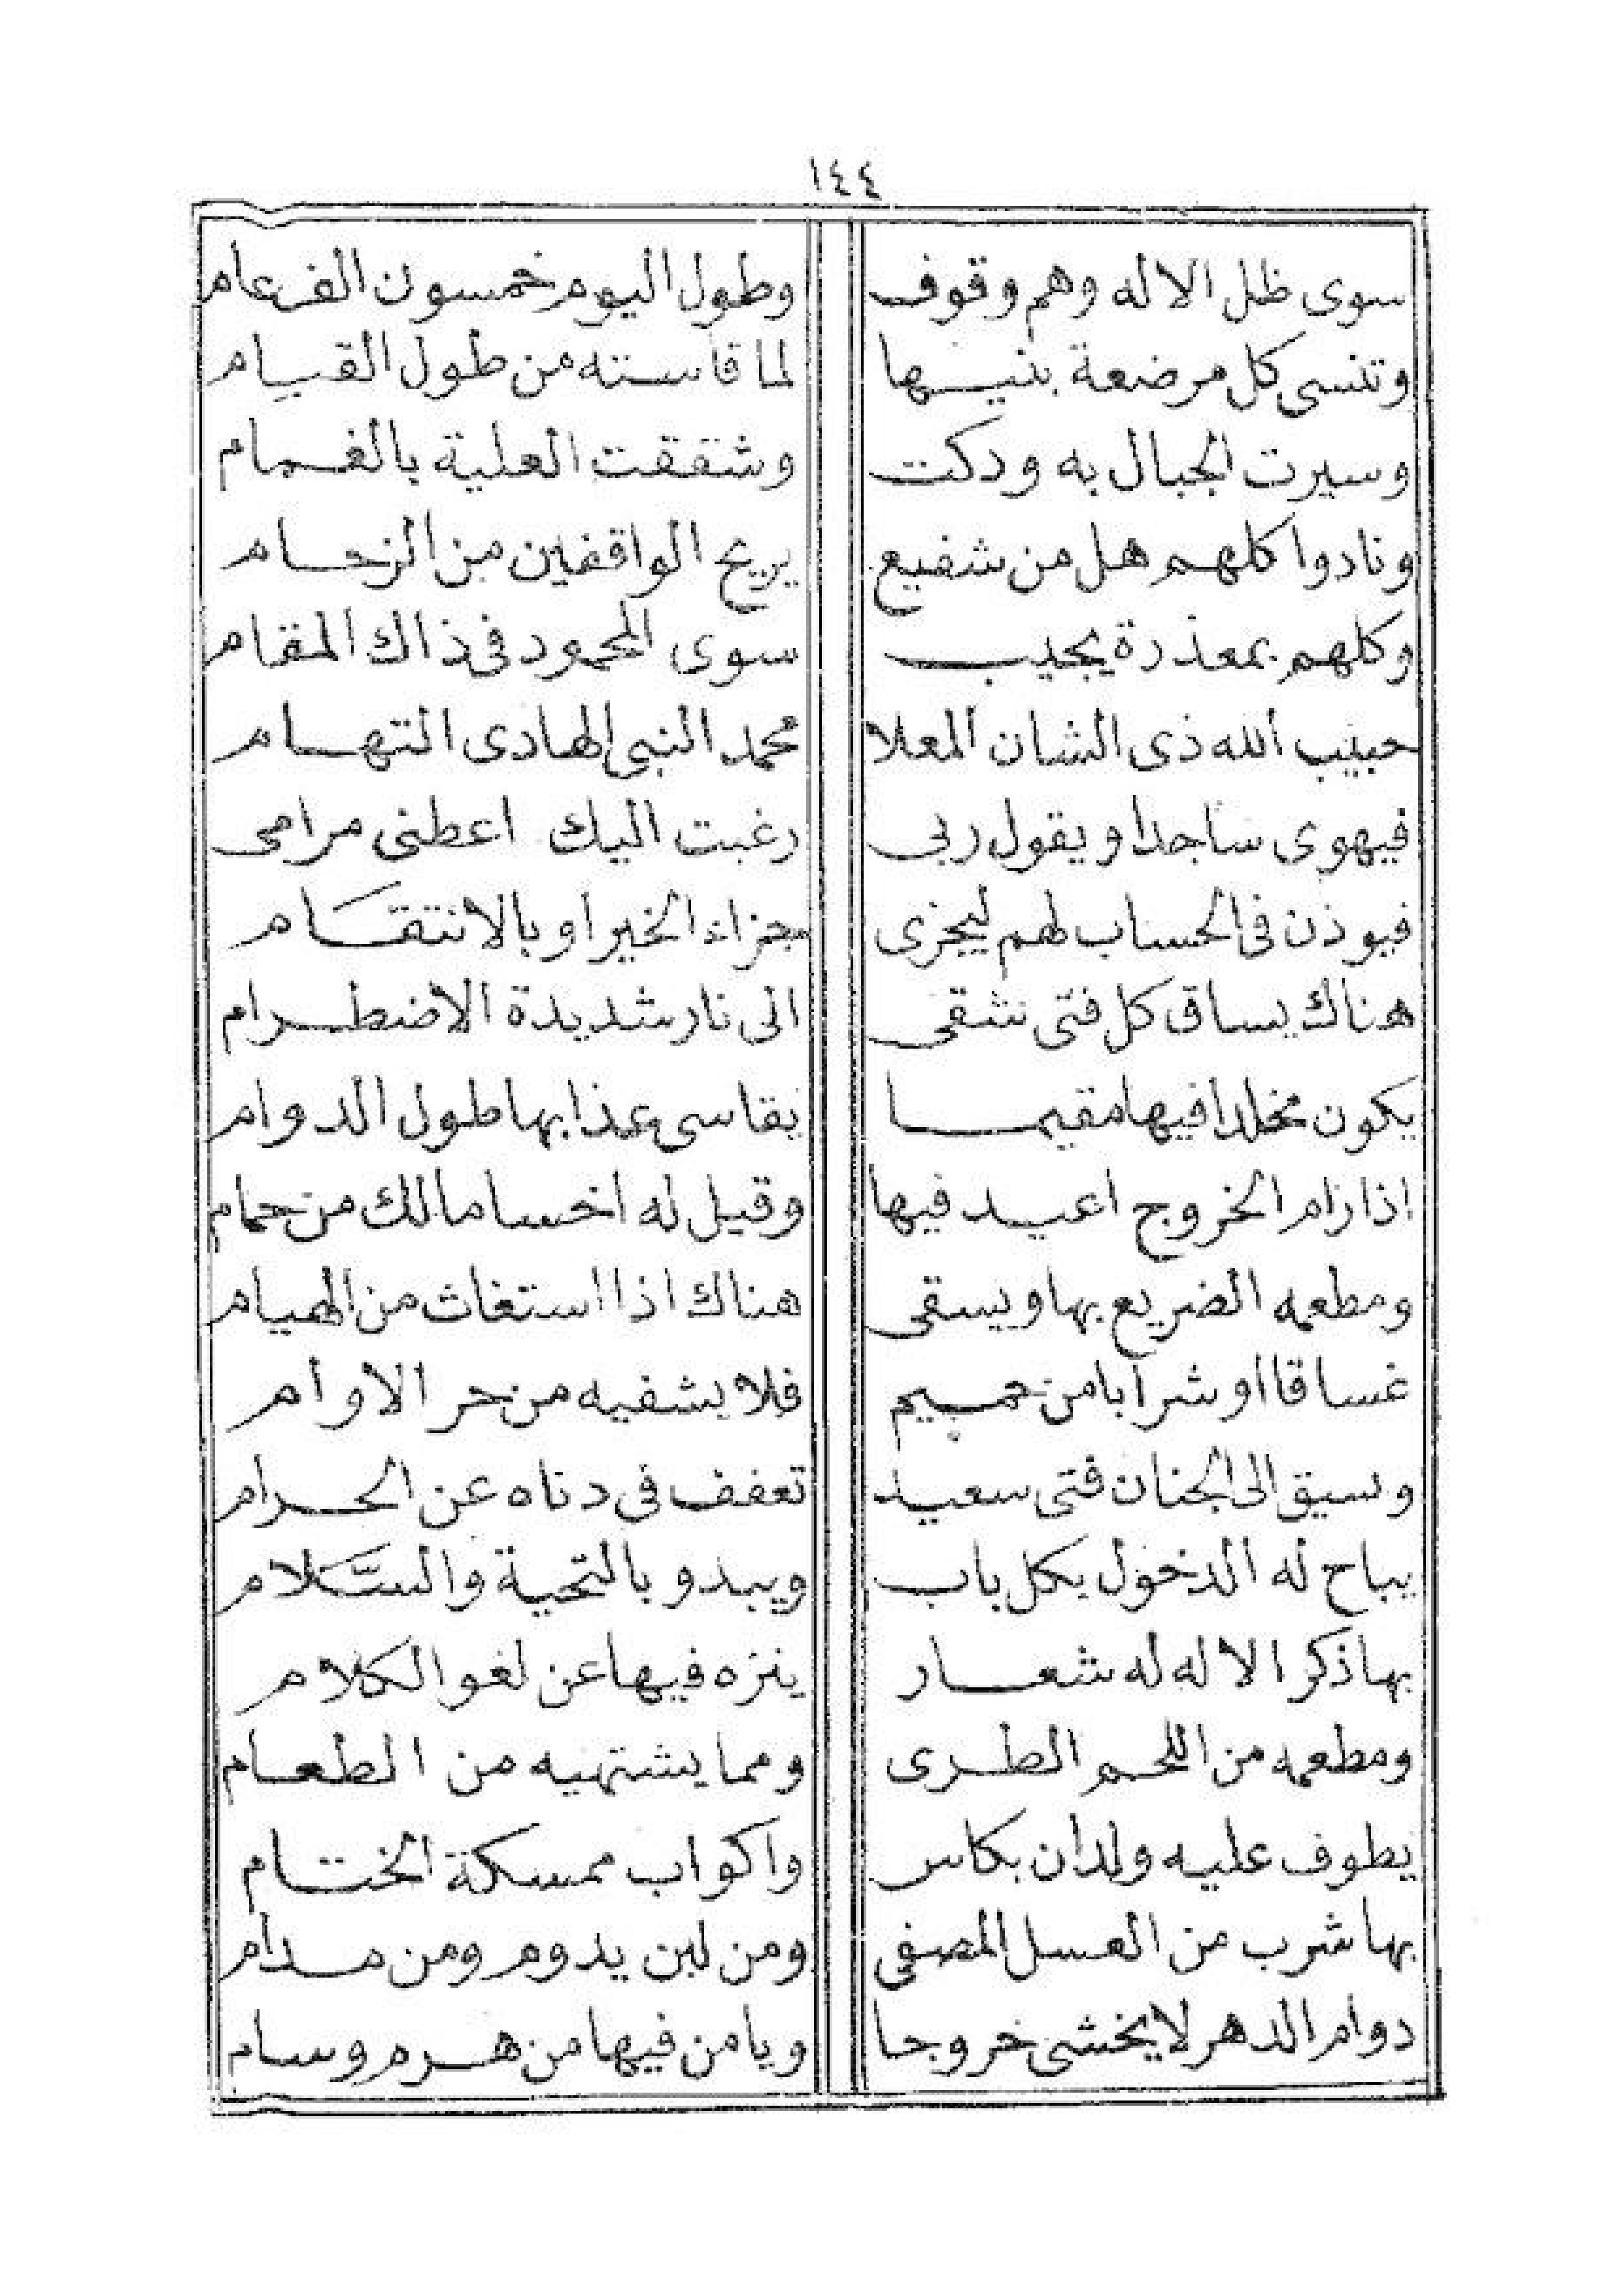 ١٤٤
سوى ظل الاله وهم وقوف وطول اليوم خمسون الف عام
وتنسى كل مرضعة بنيها لما قاسته من طول القيام
وسيرت الجبال به ودكت وشققت العلية بالغمام
ونادوا كلهم هل من شفيع يريح الواقفين من الزحام
وكلهم بمعذرة يجيب سوى المحمود فى ذاك المقام
حبيب الله ذى الشان المعلا محمد النبى الهادى التهام
فيهوى ساجدا ويقول ربى رغبت اليك اعطنى مرامى
فيوذن فى الحساب لهم ليجزى بجزاء الخير او بالانتقام
هناك يساق كل فتى شقى الى نار شديدة الاضطرام
يكون مخلدا فيها مقيما يقاسى عذابها طول الدوام
اذا رام الخروج اعيد فيها وقيل له اخسا مالك من حمام
ومطعمه الضريع بها ويسقى هناك اذا استغاث من الهيام
غساقا او شرابا من حميم فلا يشفيه من حر الاوام
وسيق الى الجنان فتى سعيد تعفف فى دناه عن الحرام
يباح له الدخول بكل باب ويبدو بالتحية والسَّلام
بها ذكر الاله له شعار ينزه فيها عن لغو الكلام
ومطعمه من اللحم الطرى ومما يشتهيه من الطعام
يطوف عليه ولدان بكاس واكواب ممسكة الختام
بها شرب من العسل المصفى ومن لبن يدوم ومن مدام
دوام الدهر لا يخشى خروجا ويامن فيها من هرم وسام